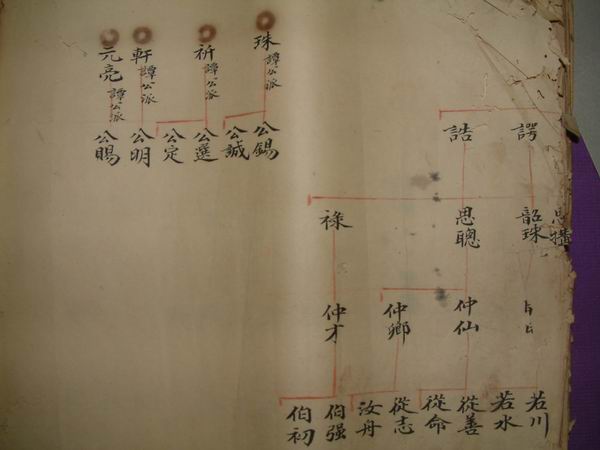 諤
誥
韶珠
思聰
祿
仲仙
仲卿
仲才
若川
若水
從善
從命
從志
汝舟
伯强
伯初
珠 譚公派
祈 譚公派
軒 譚公派
元亮 譚公派
公錫
公誠
公選
公定
公明
公賜